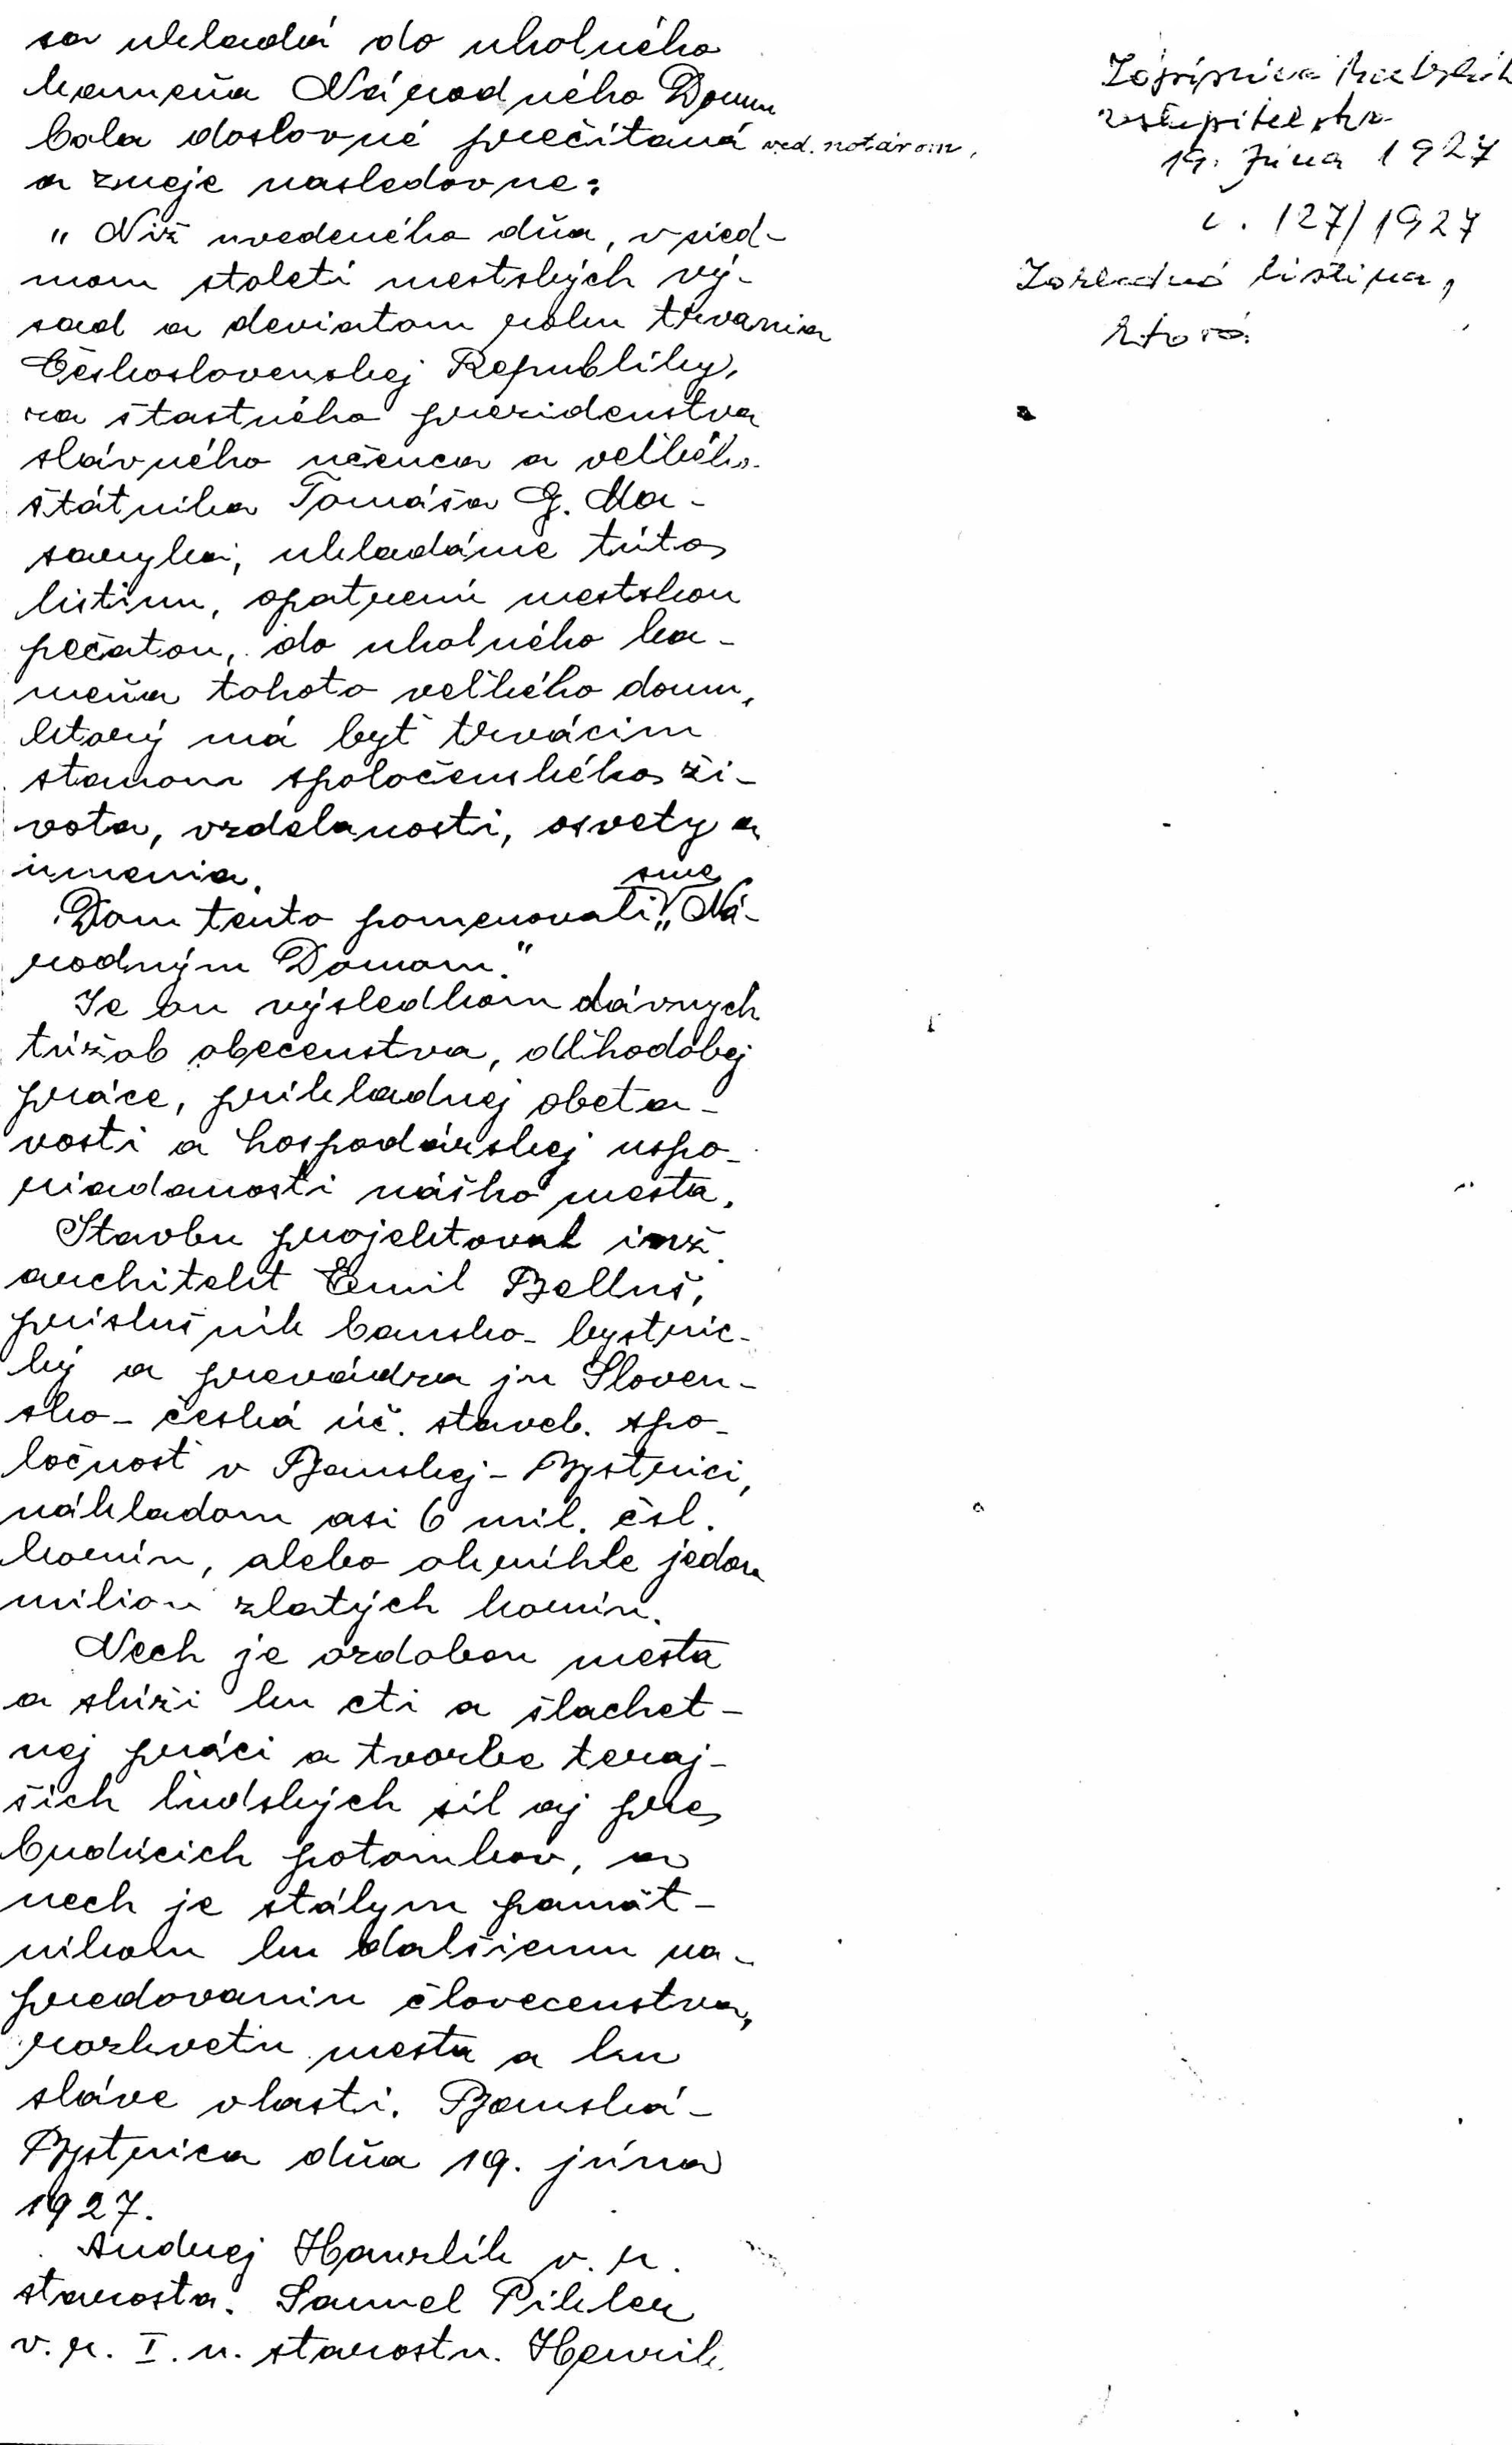 sa ukladá do uholného
kameňa Národného Domu
bola doslovné prečítaná ved. notárom,
a zneje nasledovne:
„Niž uvedeného dňa, v sied-
mom století mestských vý-
sad a deviatom roku trvania
Československej Republiky,
za šťastného prezidenstva
slávného učenca a veľkého
štátnika Tomáša G. Ma-
saryka, ukladáme túto
listinu, opatrenú mestskou
pečaťou, do uholného ka-
meňa tohoto veľkého domu,
ktorý má byť trvácim
stanom spoločenského ži-
vota, vzdelanosti, osvety a
umenia.
Dom tento pomenovali sme „Ná-
rodným Domom."
Je on výsledkom dávnych
túžob obecenstva, dlhodobej
práce, príkladnej obeta-
vosti a hospodárskej uspo-
riadanosti nášho mesta.
Stavbu projektoval inž.
architekt Emil Belluš,
príslušník bansko-bystric-
ký a prevádza ju Sloven-
sko-česká úč. staveb. spo-
ločnosť v Banskej-Bystrici,
nákladom asi 6 mil. čsl.
korún, alebo okrúhle jedon
milion zlatých korún.
Nech je ozdobou mesta
a slúži ku cti a šlachet-
nej práci a tvorbe teraj-
ších ľudských síl aj pre
budúcich potomkov, a
nech je stálym pamät-
níkom ku dalšiemu na-
predovaniu človecenstva,
rozkvetu mesta a ku
sláve vlasti. Banská-
Bystrica dňa 19. júna
1927.
Andrej Hanzlík v. r.
starosta. Samuel Pikler
v. r. I. n. starostu. Henrik
Zápisnica
19. Júna 1927
č. 127/1927
listina,
ktorá